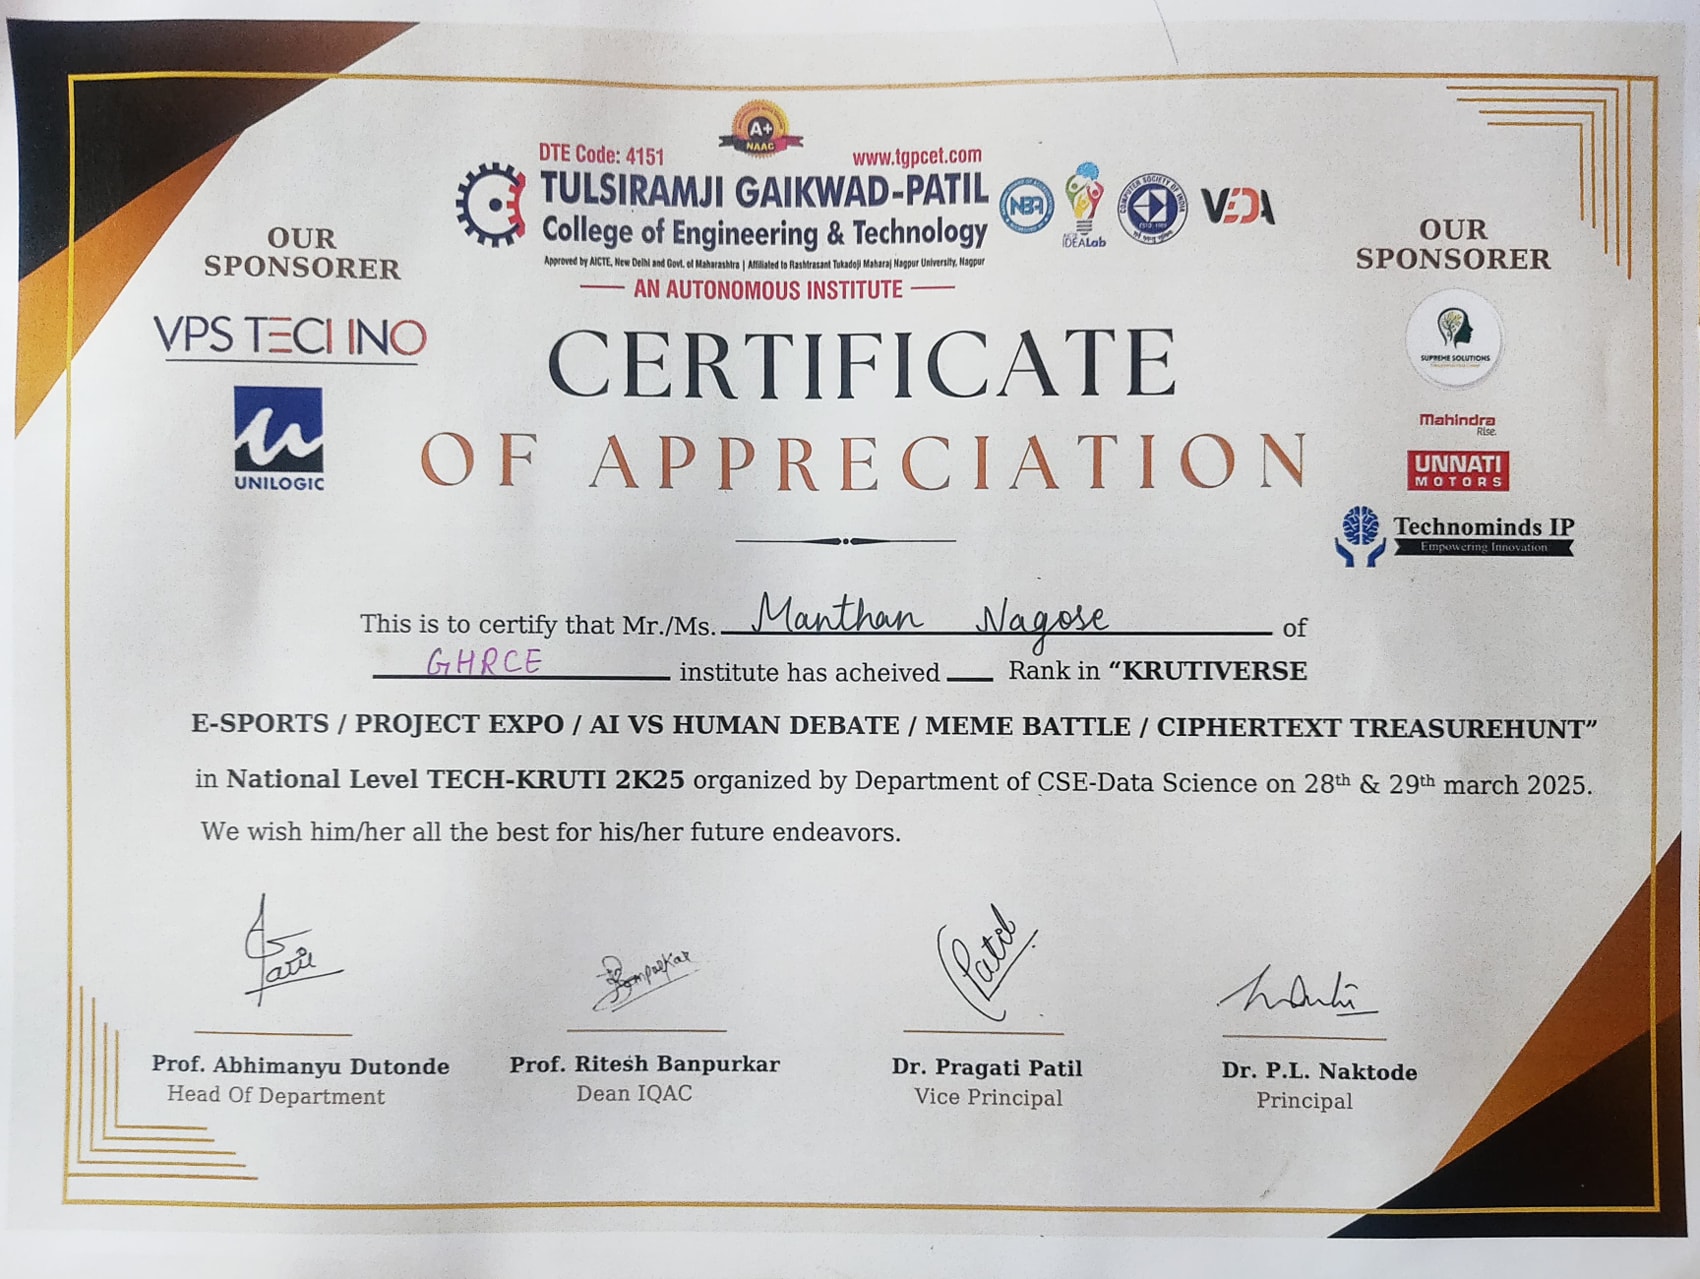 A+
NAAC
DTE Code: 4151
www.tgpcet.com
TULSIRAMJI GAIKWAD-PATIL
College of Engineering & Technology
Approved by AICTE, New Delhi and Govt. of Maharashtra | Affiliated to Rashtrasant Tukadoji Maharaj Nagpur University, Nagpur
AN AUTONOMOUS INSTITUTE
NBA
IDEALab
COMPUTER SOCIETY OF INDIA
VEDA
OUR
SPONSORER
VPS TECHNO
UNILOGIC
OUR
SPONSORER
SUPREME SOLUTIONS
Mahindra
Rise.
UNNATI
MOTORS
Technominds IP
Empowering Innovation
CERTIFICATE
OF APPRECIATION
This is to certify that Mr./Ms. Manthan Nagose of
GHRCE institute has acheived ___ Rank in “KRUTIVERSE
E-SPORTS / PROJECT EXPO / AI VS HUMAN DEBATE / MEME BATTLE / CIPHERTEXT TREASUREHUNT”
in National Level TECH-KRUTI 2K25 organized by Department of CSE-Data Science on 28th & 29th march 2025.
We wish him/her all the best for his/her future endeavors.
Prof. Abhimanyu Dutonde
Head Of Department
Prof. Ritesh Banpurkar
Dean IQAC
Dr. Pragati Patil
Vice Principal
Dr. P.L. Naktode
Principal